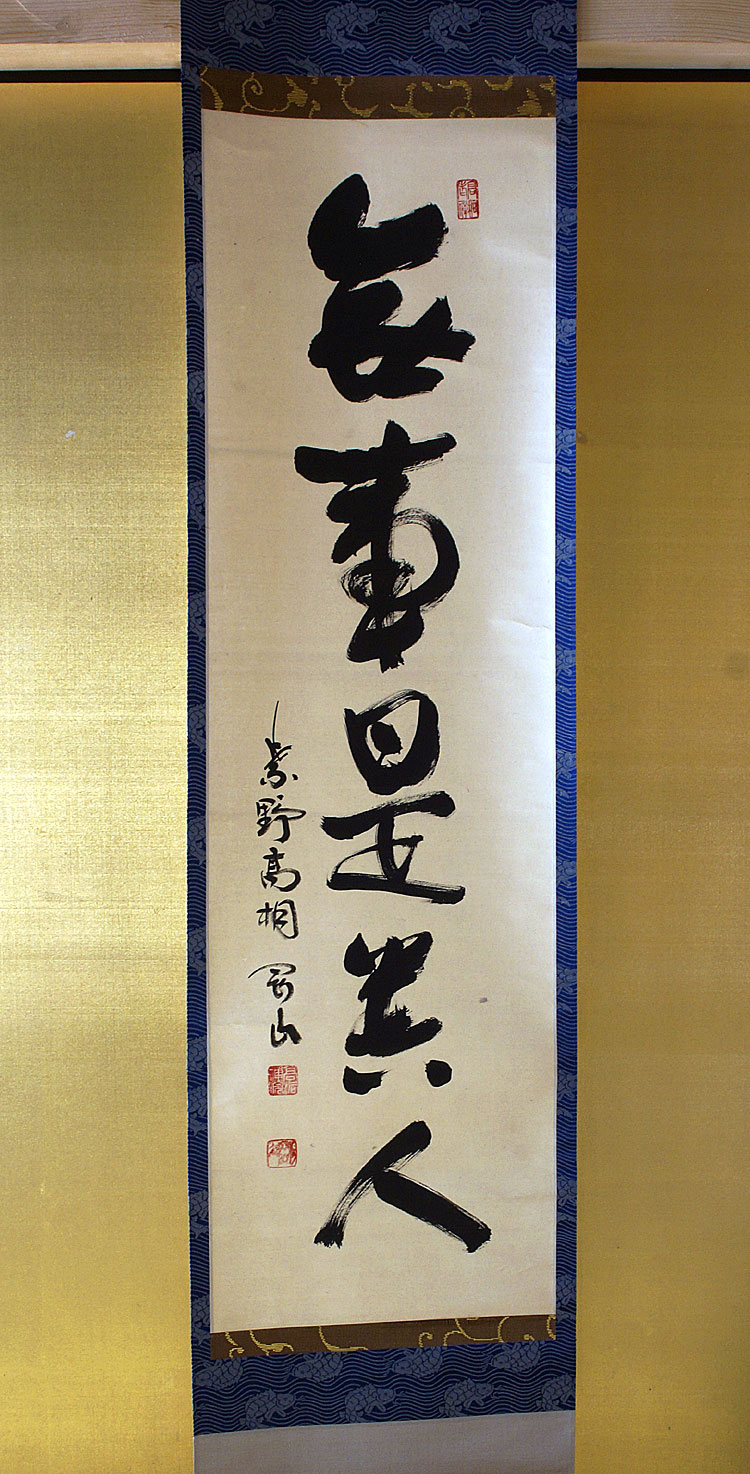 無事是貴人
紫野高桐 寛山